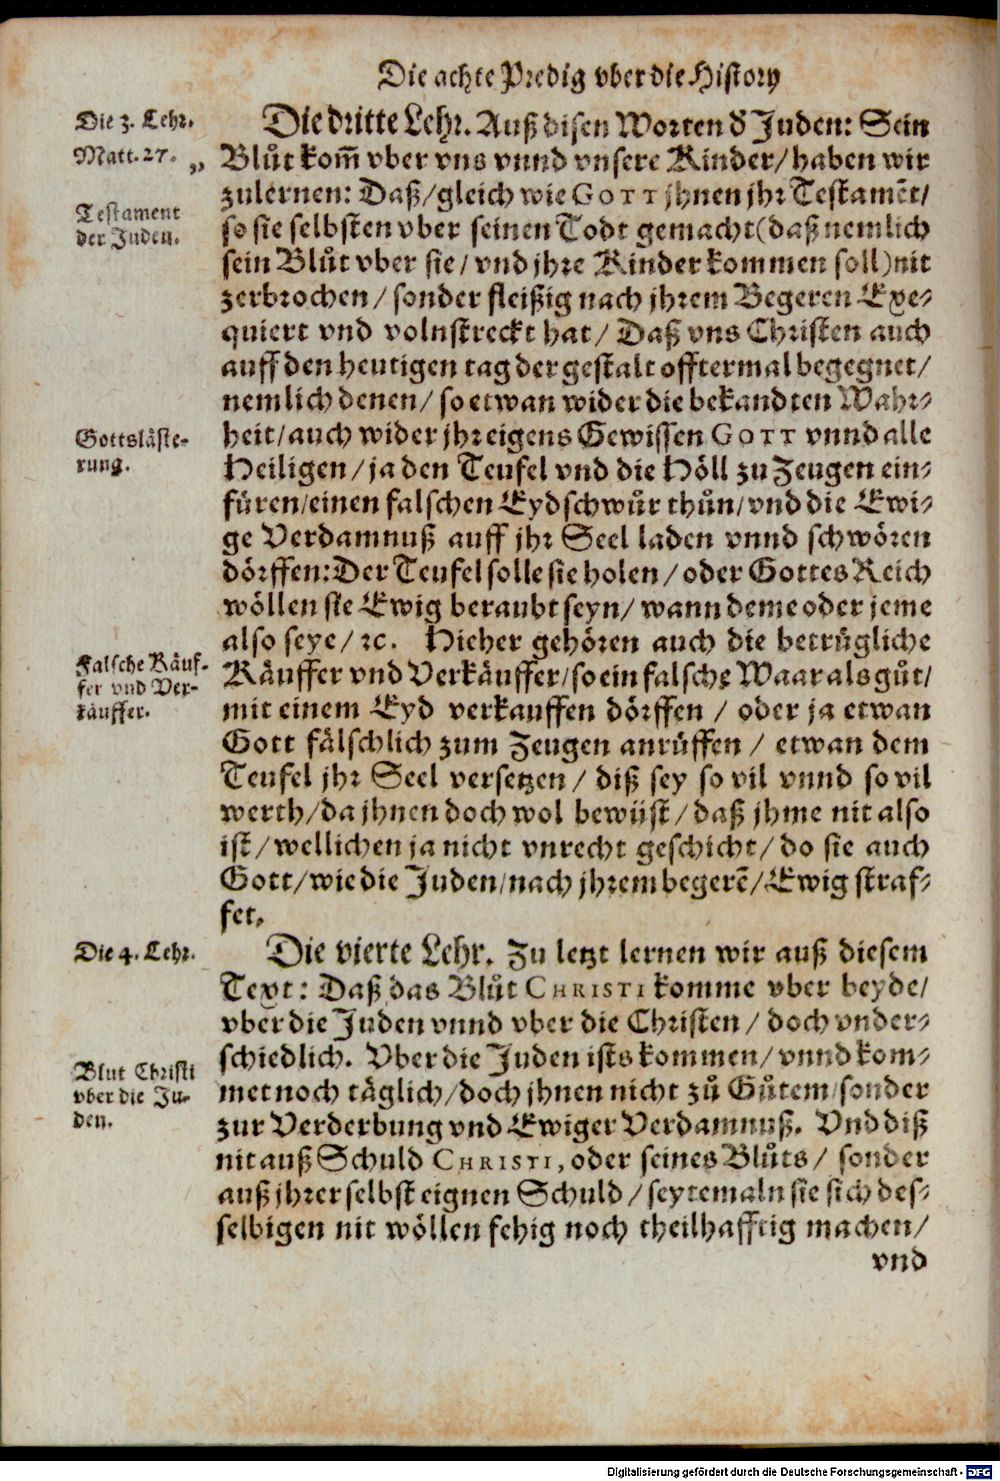 Die achte Predig vber die History
Die 3. Lehr.
Matt. 27.
Testament
der Juden.
Die dritte Lehr. Auß disen Worten đ Juden: Sein
„ Blůt kom̃ vber vns vnnd vnsere Kinder/ haben wir
zulernen: Daß/ gleich wie GOTT jhnen jhr Testamẽt/
so sie selbsten vber seinen Todt gemacht (daß nemlich
sein Blůt vber sie/ vnd jhre Kinder kommen soll) nit
zerbrochen/ sonder fleißig nach jhrem Begeren Exe-
quiert vnd volnstreckt hat/ Daß vns Christen auch
auff den heutigen tag der gestalt offtermal begegnet/
nemlich denen/ so etwan wider die bekandten Wahr-
Gottsläste-
rung.
heit/ auch wider jhr eigens Gewissen GOTT vnnd alle
Heiligen/ ja den Teufel vnd die Höll zu Zeugen ein-
füren/ einen falschen Eydschwůr thůn/ vnd die Ewi-
ge Verdamnuß auff jhr Seel laden vnnd schwören
dörffen: Der Teufel solle sie holen/ oder Gottes Reich
wöllen sie Ewig beraubt seyn/ wann deme oder jeme
also seye/ ꝛc. Hieher gehören auch die betrügliche
Falsche Käuf-
fer vnd Ver-
käuffer.
Käuffer vnd Verkäuffer/ so ein falsche Waar als gůt/
mit einem Eyd verkauffen dörffen / oder ja etwan
Gott fälschlich zum Zeugen anrüffen / etwan dem
Teufel jhr Seel versetzen / diß sey so vil vnnd so vil
werth/ da jhnen doch wol bewüst/ daß jhme nit also
ist/ wellichen ja nicht vnrecht geschicht/ do sie auch
Gott/ wie die Juden/ nach jhrem begerẽ/ Ewig straf-
fet.
Die 4. Lehr.
Die vierte Lehr. Zu letzt lernen wir auß diesem
Text: Daß das Blůt CHRISTI komme vber beyde/
vber die Juden vnnd vber die Christen / doch vnder-
Blut Christi
vber die Ju-
den.
schiedlich. Vber die Juden ists kommen/ vnnd kom-
met noch täglich/ doch jhnen nicht zů Gůtem/ sonder
zur Verderbung vnd Ewiger Verdamnuß. Vnd diß
nit auß Schuld CHRISTI, oder seines Blůts / sonder
auß jhrer selbst eignen Schuld / seytemaln sie sich des-
selbigen nit wöllen fehig noch theilhafftig machen/
vnd
Digitalisierung gefördert durch die Deutsche Forschungsgemeinschaft - DFG